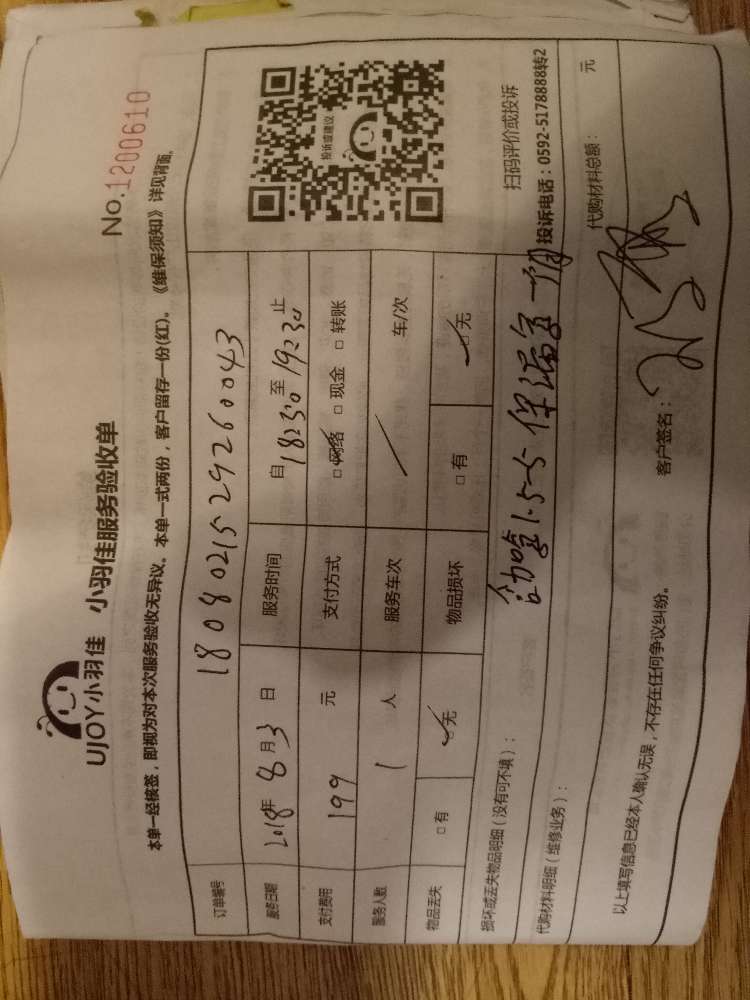 UJOY小羽佳 小羽佳服务验收单
No.1200610
本单一经核签，即视为对本次服务验收无异议。本单一式两份，客户留存一份(红)。《维保须知》详见背面。
订单编号 1808021529260043
服务日期 2018年8月3日 服务时间 自18:30至19:30止
支付费用 199元 支付方式 □网络 □现金 □转账
服务人数 1人 服务车次 / 车/次
物品丢失 □有 □无 物品损坏 □有 □无
投诉或建议
扫码评价或投诉
投诉电话：0592-5178888转2
损坏或丢失物品明细（没有可不填）：
1.5-5 保漏氟一个月
代购材料明细（维修业务）： 代购材料总额： 元
以上填写信息已经本人确认无误，不存在任何争议纠纷。 客户签名：